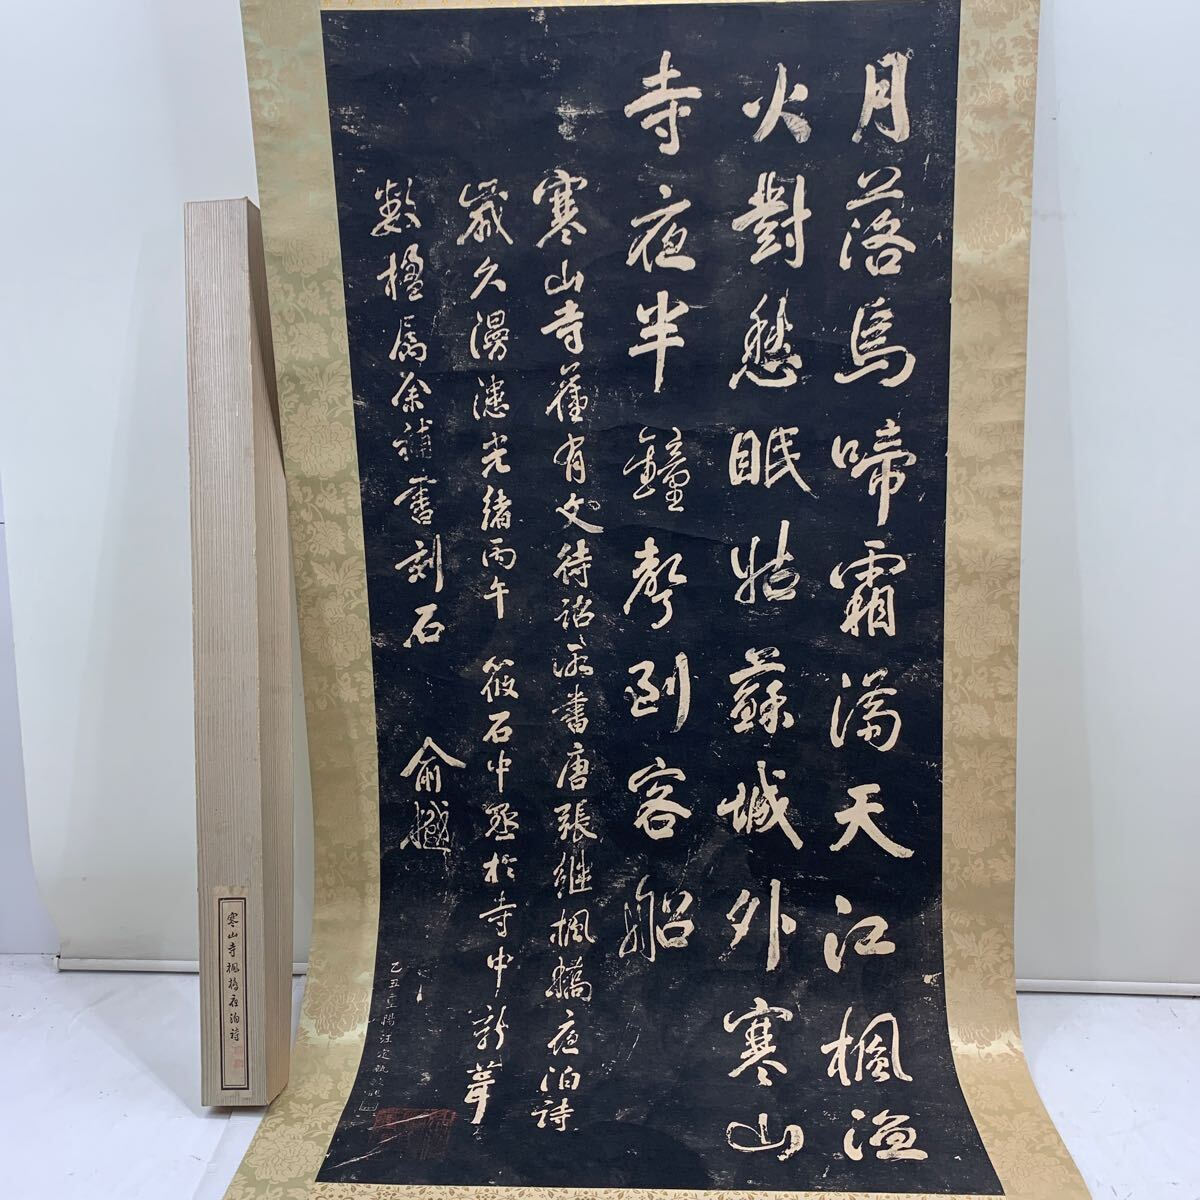 月落烏啼霜滿天江楓漁
火對愁眠姑蘇城外寒山
寺夜半鐘聲到客船
寒山寺舊有文待詔所書唐張繼楓橋夜泊詩
歲久漫漶光緒丙午筱石中丞於寺中新葺
數楹屬余補書刻石
俞樾
寒山寺楓橋夜泊詩